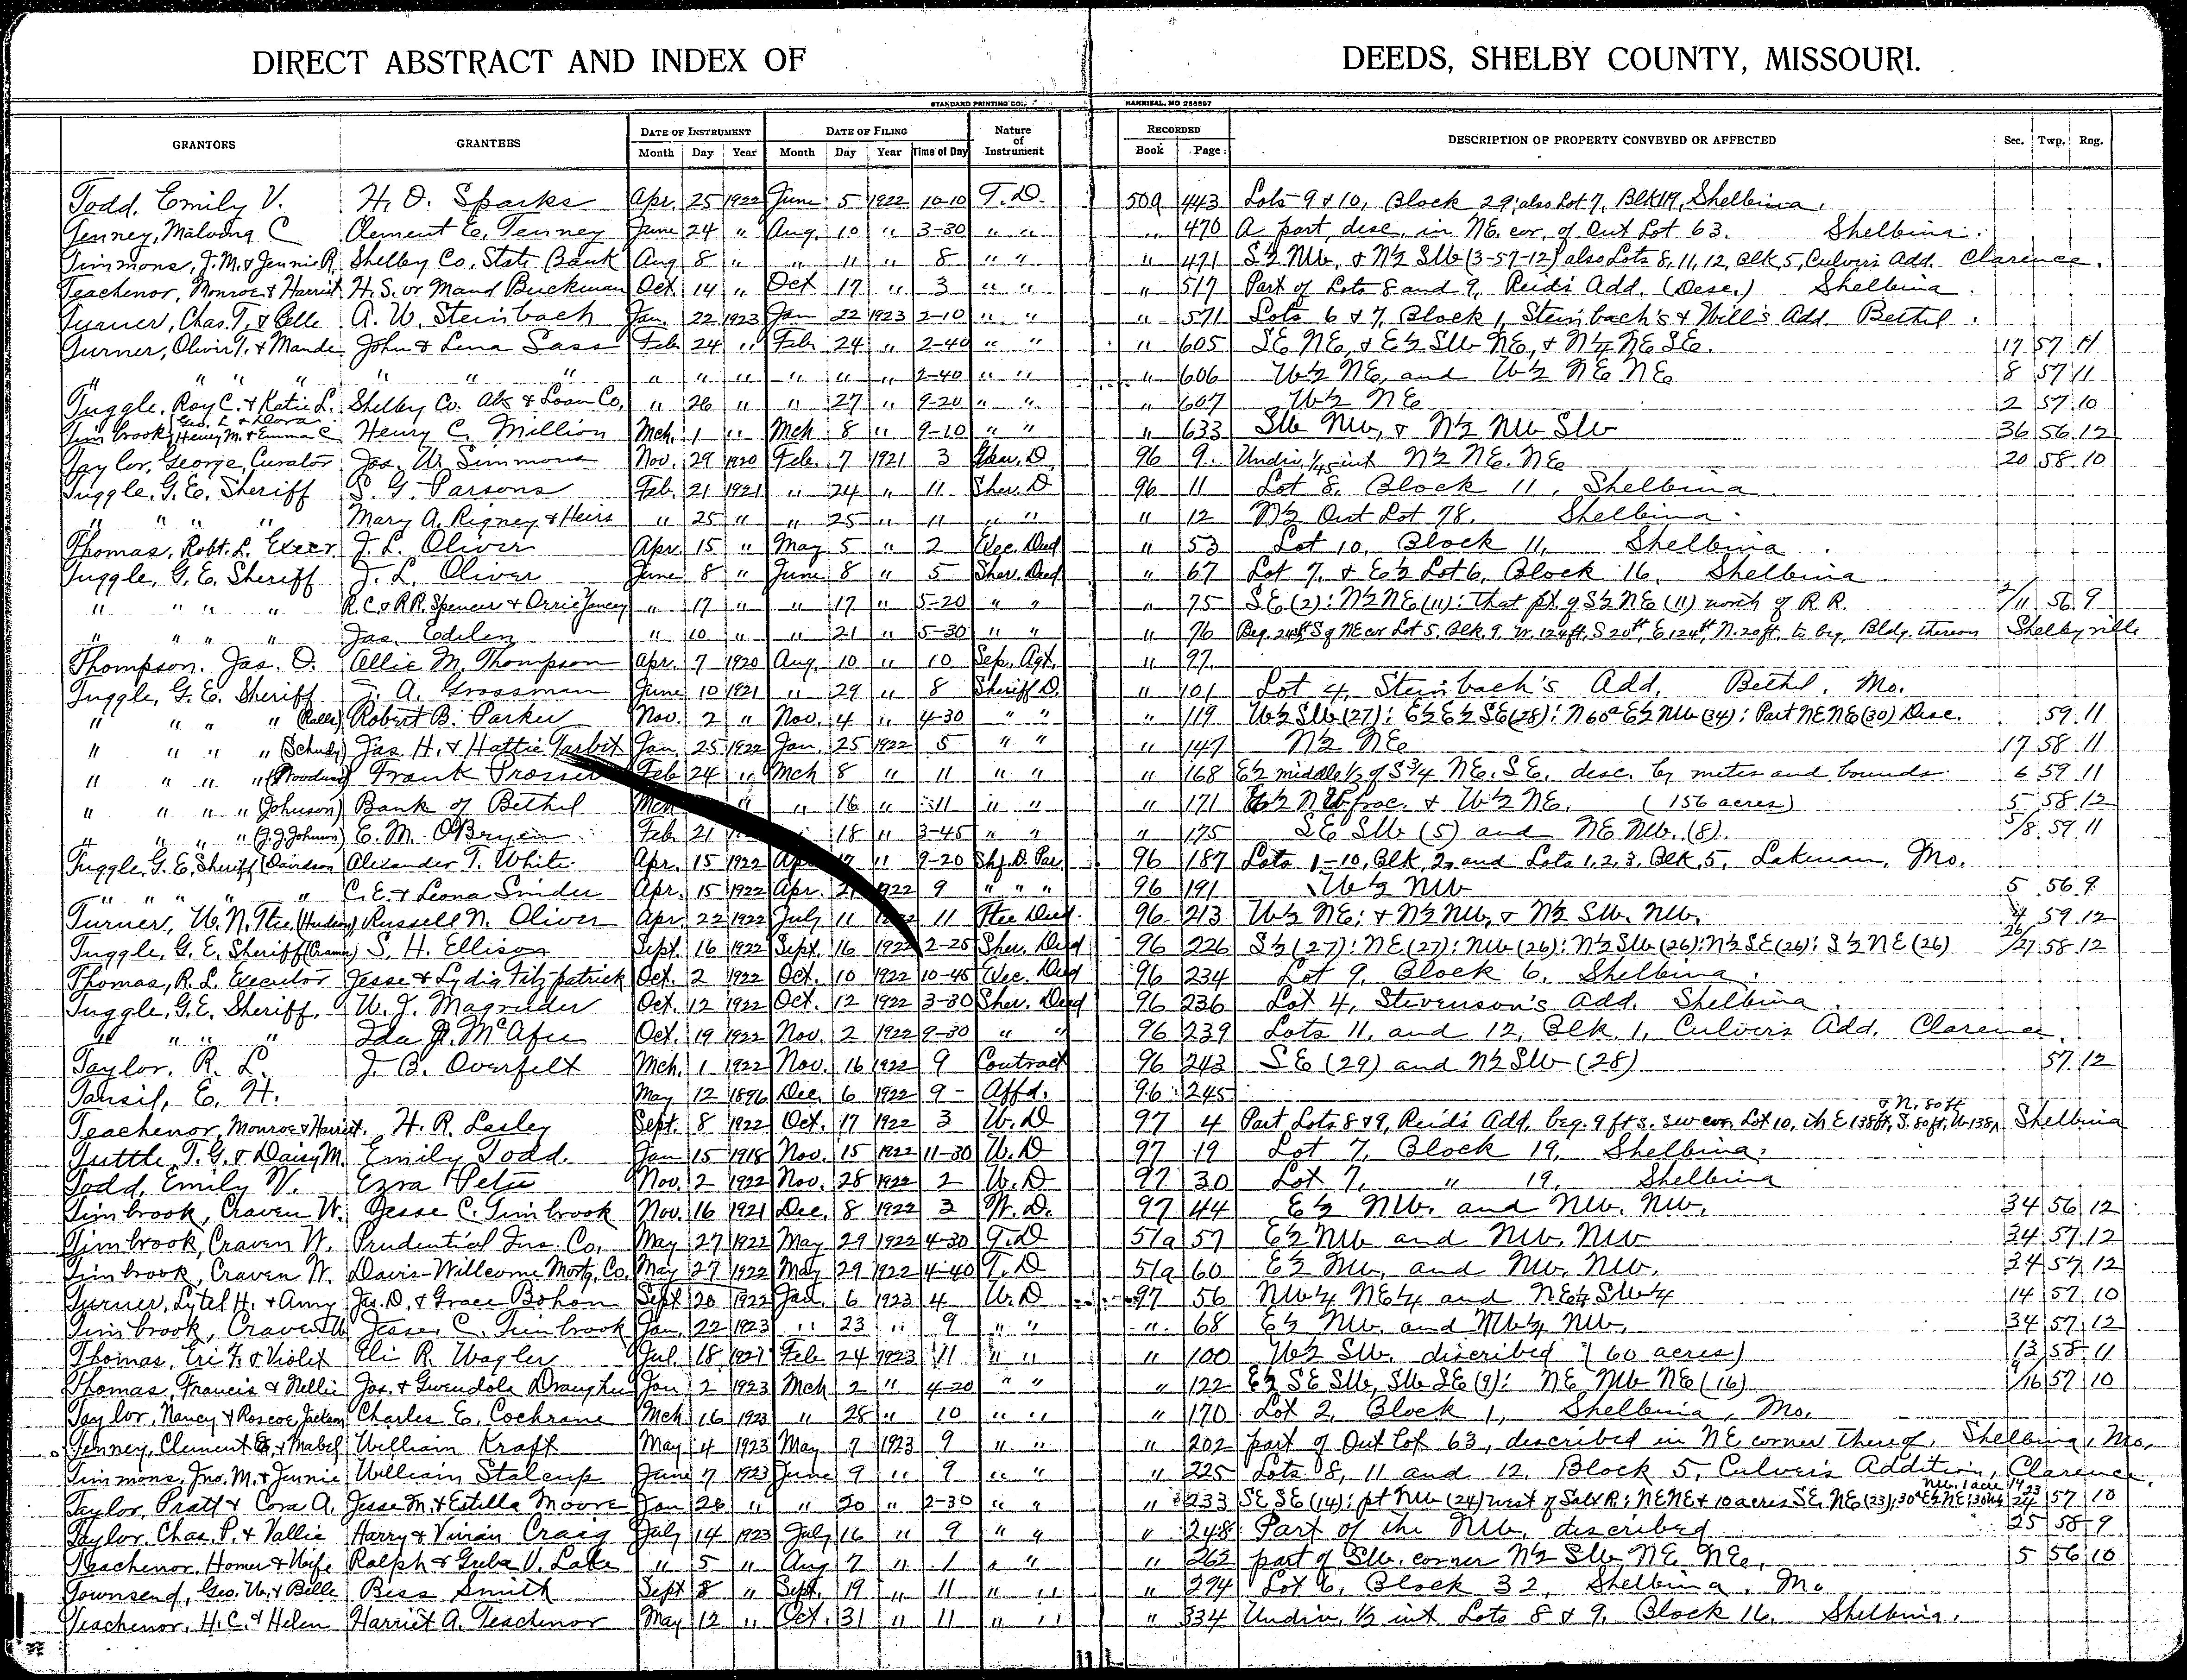 DIRECT ABSTRACT AND INDEX OF DEEDS, SHELBY COUNTY, MISSOURI.
STANDARD PRINTING CO., HANNIBAL, MO 258697
GRANTORS GRANTEES DATE OF INSTRUMENT DATE OF FILING Nature of Instrument RECORDED DESCRIPTION OF PROPERTY CONVEYED OR AFFECTED Sec. Twp. Rng.
Month Day Year Month Day Year Time of Day Book Page
Todd, Emily V. H. O. Sparks Apr. 25 1922 June 5 1922 10-10 T. D. 50a 443 Lots 9 & 10, Block 29; also Lot 7, Blk 19, Shelbina.
Tenney, Malvina C Clement E. Tenney June 24 " Aug. 10 " 3-30 " " " 470 A part, desc. in NE. cor. of Out Lot 63. Shelbina.
Timmons, J. M. & Jennie R. Shelby Co. State Bank Aug 8 " " 11 " 8 " " " 471 S½ NW. & N½ SW (3-57-12) also Lots 8, 11, 12, Blk, 5, Culver's Add. Clarence.
Teachenor, Monroe & Harriet H. S. or Maud Buckman Oct 14 " Oct 17 " 3 " " " 517 Part of Lots 8 and 9, Reid's Add. (Desc.) Shelbina.
Turner, Chas. T. & Belle A. W. Steinbach Jan. 22 1923 Jan 22 1923 2-10 " " " 571 Lots 6 & 7, Block 1, Steinbach's & Will's Add. Bethel.
Turner, Oliver T. & Maude John & Lena Sass Feb 24 " Feb. 24 " 2-40 " " " 605 SE NE, & E½ SW NE, & N½ NE SE. 17 57 11
" " " " " " " " " " " " " 2-40 " " " 606 W½ NE, and W½ NE NE 8 57 11
Tuggle, Roy C. & Katie L. Shelby Co. Abs & Loan Co. " 26 " " 27 " 9-20 " " " 607 W½ NE 2 57 10
Geo. L & Dora
Timbrook, Henry M. & Emma C Henry C. Million Mch. 1 " Mch 8 " 9-10 " " " 633 SW NW, & N½ NW SW 36 56 12
Taylor, George, Curator Jos. W. Simmons Nov. 29 1920 Feb. 7 1921 3 96 9. Undiv. 1/45 int N½ NE. NE 20 58 10
Tuggle, G. E. Sheriff S. G. Parsons Feb. 21 1921 " 24 " 11 Sher. D 96 11 Lot 8, Block 11, Shelbina.
" " " " Mary A. Rigney & Heirs " 25 " " 25 " 11 " " " 12 N½ Out Lot 78. Shelbina.
Thomas, Robt. L. Execr. J. L. Oliver Apr. 15 " May 5 " 2 Exec. Deed " 53 Lot 10, Block 11, Shelbina.
Tuggle, G. E. Sheriff J. L. Oliver June 8 " June 8 " 5 Sher. Deed " 67 Lot 7, & E½ Lot 6, Block 16, Shelbina
" " " " R. C. & R. R. Spencer & Orrie Yancey " 17 " " 17 " 5-20 " " " 75 SE (2): N½ NE (11): That pt of S½ NE (11) north of R. R. 2/11 56 9
" " " " Jas. Edelen " 10 " " 21 " 5-30 " " " 76 Beg. 24 ft S of NE cor Lot 5, Blk. 9, W. 124 ft, S 20 ft, E 124 ft, N. 20 ft. to beg. Bldg. thereon Shelbyville
Thompson, Jas. O. Allie M. Thompson Apr. 7 1920 Aug. 10 " 10 Sep. Agt. " 97
Tuggle, G. E. Sheriff J. A. Grossman June 10 1921 " 29 " 8 Sheriff D. " 101 Lot 4, Steinbach's Add. Bethel, Mo.
" " " " (Ralls) Robert B. Parker Nov. 2 " Nov. 4 " 4-30 " " " 119 W½ SW (27): E½ E½ SE (28): N 60a E½ NW (34): Part NE NE (30) Desc. 59 11
" " " " (Schudy) Jas H. & Hattie Tarbit Jan. 25 1922 Jan. 25 1922 5 " " " 147 N½ NE 17 58 11
" " " " (Woodward) Frank Prosser Feb 24 " Mch 8 " 11 " " " 168 E½ middle ⅓ of S¾ NE. SE. desc. by metes and bounds. 6 59 11
" " " " (Johnson) Bank of Bethel Mch " " 16 " 11 " " " 171 E½ NW frac. & W½ NE. (156 acres) 5 58 12
" " " " (J. J. Johnson) E. M. O'Bryen Feb 21 " 18 " 3-45 " " " 175 SE SW (5) and NE NW. (8). 5/8 59 11
Tuggle, G. E, Sheriff (Davidson Alexander T. White Apr. 15 1922 Apr 17 " 9-20 Shf. D. Par. 96 187 Lots 1-10, Blk, 2, and Lots 1, 2, 3, Blk, 5, Lakenan, Mo.
" " " " " C. E. & Leona Snider Apr. 15 1922 Apr. 21 1922 9 " " " 96 191 W½ NW 5 56 9
Turner, W. N. Ttee (Hudson) Russell N. Oliver Apr. 22 1922 July 11 1922 11 Ttee Deed. 96 213 W½ NE: & N½ NW, & N½ SW. NW. 4 59 12
Tuggle, G. E. Sheriff S. H. Ellison Sept. 16 1922 Sept. 16 1922 2-25 Sher. Deed 96 226 S½ (27): NE (27): NW (26): N½ SW (26): N½ SE (26): S½ NE (26) 26/27 58 12
Thomas, R. L. Executor Jesse & Lydia Fitzpatrick Oct. 2 1922 Oct. 10 1922 10-45 Exec. Deed 96 234 Lot 9, Block 6, Shelbina.
Tuggle, G. E. Sheriff. W. J. Magruder Oct. 12 1922 Oct. 12 1922 3-30 Sher. Deed 96 236 Lot 4, Stevenson's Add. Shelbina.
" " " " Ida A. McAfee Oct. 19 1922 Nov. 2 1922 9-30 " " 96 239 Lots 11, and 12, Blk. 1, Culver's Add. Clarence
Taylor, R. L. J. B. Overfelt Mch. 1 1922 Nov. 16 1922 9 Contract 96 243 SE (29) and N½ SW (28) 57 12
Tansil, E. H. May 12 1896 Dec. 6 1922 9 - Affd. 96 245
& N. 80 ft
Teachenor, Monroe & Harriet. H. R. Lasley Sept. 8 1922 Oct. 17 1922 3 W. D 97 4 Part Lots 8 & 9, Reid's Add. beg. 9 ft S. SW cor. Lot 10, th E 138 ft, S. 80 ft, W 138, Shelbina
Tuttle, T. G. & Daisy M. Emily Todd. Jan 15 1918 Nov. 15 1922 11-30 W. D 97 19 Lot 7, Block 19, Shelbina.
Todd, Emily V. Ezra Peter Nov. 2 1922 Nov. 28 1922 2 W. D 97 30 Lot 7, " 19, Shelbina
Timbrook, Craven W. Jesse C. Timbrook Nov. 16 1921 Dec. 8 1922 3 W. D. 97 44 E½ NW. and NW. NW. 34 56 12
Timbrook, Craven W. Prudential Ins. Co. May 27 1922 May 29 1922 4-30 T. D 51a 57 E½ NW and NW. NW 34 57 12
Timbrook, Craven W. Davis-Willcome Mortg. Co. May 27 1922 May 29 1922 4-40 T. D 51a 60 E½ NW. and NW. NW. 34 57 12
Turner, Lytel H. & Amy Jas. D. & Grace Bohon Sept 20 1922 Jan. 6 1923 4 W. D 97 56 NW¼ NE¼ and NE¼ SW¼ 14 57 10
Timbrook, Craven W Jesse C. Timbrook Jan. 22 1923 " 23 " 9 " " " 68 E½ NW. and NW¼ NW. 34 57 12
Thomas, Eri F. & Violet Eli R. Wagler Jul. 18 1921 Feb 24 1923 11 " " " 100 W½ SW. discribed (60 acres) 13 58 11
Thomas, Francis & Nellie Jos. & Gwendola Jan 2 1923 Mch 2 " 4-20 " " " 122 E½ SE SW, SW SE (9): NE NW NE (16) 9/16 57 10
Taylor, Nancy & Roscoe Jackson Charles E. Cochrane Mch 16 1923 " 28 " 10 " " " 170 Lot 2, Block 1, Shelbina, Mo.
Tenney, Clement E. & Mabel William Kraft May 4 1923 May 7 1923 9 " " " 202 part of Out Lot 63, described in NE corner thereof. Shelbina, Mo.
Timmons, Jno. M. & Jennie William Stalcup June 7 1923 June 9 " 9 " " " 225 Lots 8, 11 and 12, Block 5, Culver's Addition, Clarence.
Taylor, Pratt & Cora A. Jesse M. & Estella Moore Jan 26 " " 20 " 2-30 " " " 233 SE SE (14): pt NW (24) west of Salt R: NE NE & 10 acres SE. NE (23); 24 57 10
Taylor, Chas. P. & Vallie Harry & Vivian Craig July 14 1923 July 16 " 9 " " " 248 Part of the NW. described 25 58 9
Teachenor, Homer & Wife Ralph & Greba V. Lake " 5 " Aug 7 " 1 " " " 262 part of SW. corner N½ SW NE NE, 5 56 10
Townsend, Geo. W. & Belle Bess Smith Sept 8 " Sept. 19 " 11 " " " 294 Lot 6, Block 32, Shelbina, Mo
Teachenor, H. C. & Helen Harriet A. Teachenor May 12 " Oct. 31 " 11 " " " 334 Undiv. ½ int Lots 8 & 9, Block 16, Shelbina.